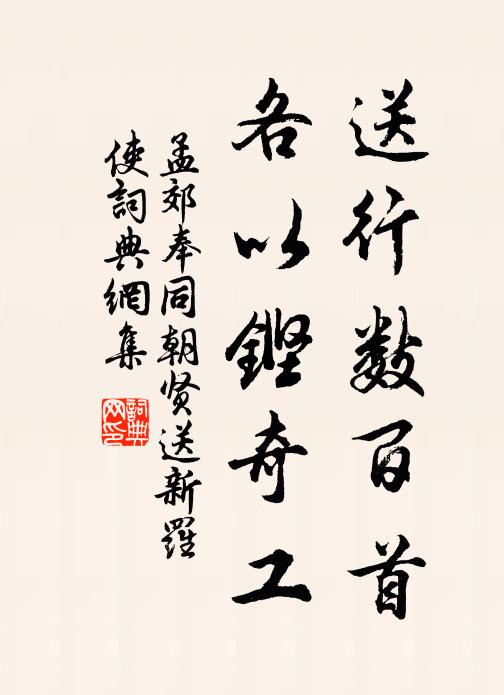 送行数百首
各以鏗奇工
孟郊奉同朝贤送新羅
使詞典網集
詞典
网印